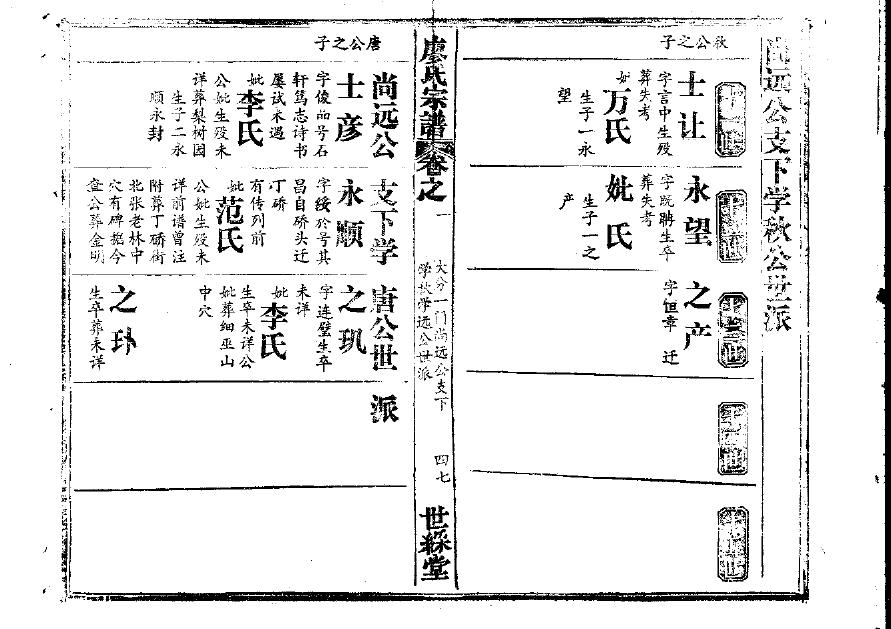 尚远公支下学秋公世派
十一世
秋公之子
士让
字言中生殁
葬失考
妣
万氏
生子一永
望
永望
字既聘生卒
葬失考
妣氏
生子一之
产
十三世
之产
字恒章 迁
廖氏宗譜
卷之一
大分一门尚远公支下
学秋学远公世派
四七
世綵堂
尚远公支下学唐公世派
唐公之子
士彦
字像品号石
轩笃志诗书
屡试未遇
妣
李氏
公妣生殁未
详葬梨树因
生子二永
顺永封
永顺
字绥於号其
昌自硚头迁
丁硚
有传列前
妣
范氏
公妣生殁未
详前谱曾注
附葬丁硚街
北张老林中
穴有碑据今
查公葬金明
之玑
字连璧生卒
未详
妣
李氏
生卒未详公
妣葬细巫山
中穴
之玤
生卒葬未详